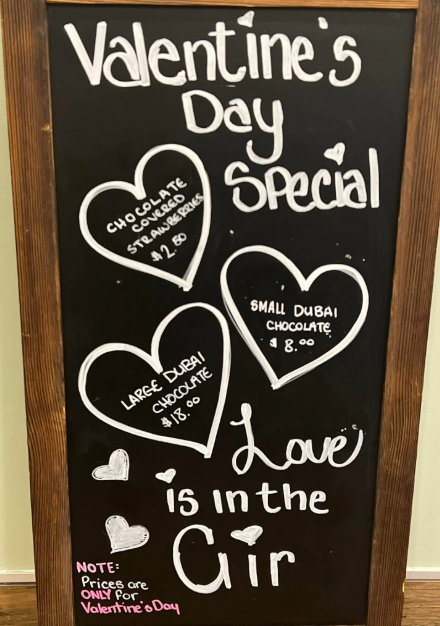 Valentine's
Day
Special
CHOCOLATE
COVERED
STRAWBERRIES
$2.50
SMALL DUBAI
CHOCOLATE
$8.00
LARGE DUBAI
CHOCOLATE
$18.00
Love
is in the
Air
NOTE:
Prices are
ONLY for
Valentine's Day